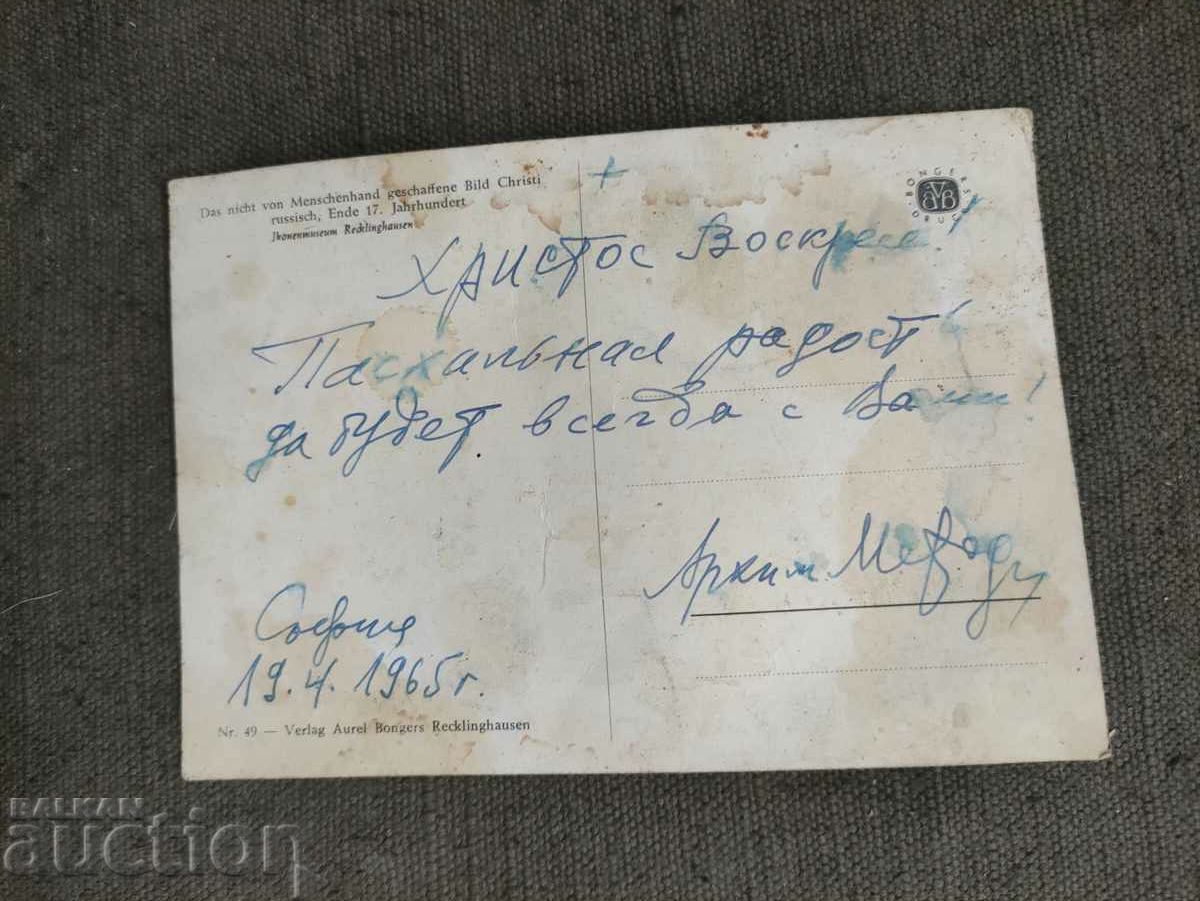 Das nicht von Menschenhand geschaffene Bild Christi
russisch, Ende 17. Jahrhundert
Ikonenmuseum Recklinghausen
BONGERS DRUCK
AVB
+
Христос Воскресе!
Пасхальная радость
да будет всегда с Вами!
Архим. Методи
София
19.4.1965 г.
Nr. 49 — Verlag Aurel Bongers Recklinghausen
BALKAN
auction